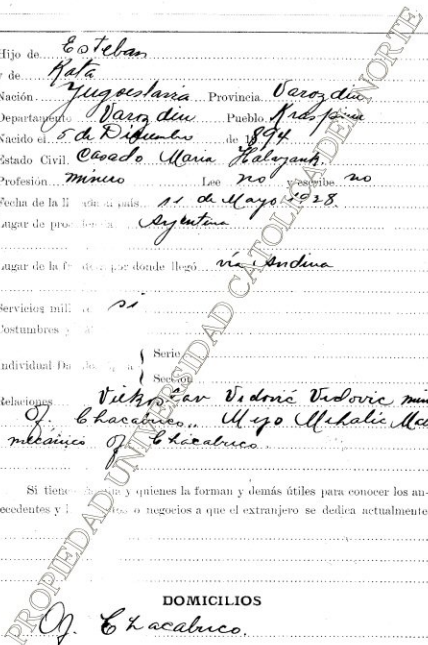 Hijo de Esteban
y de Kata
Nación Yugoeslavia Provincia Varozdin
Departamento Varozdin Pueblo Kraspina
Nacido el 5 de Diciembre de 1894
Estado Civil Casado Maria
Profesión minero Lee no escribe no
Fecha de la país 11 de Mayo 1928.
Lugar de Argentina
Lugar de la por donde llegó via Andina
Servicios si
Costumbres y
Individual
Serie
Sección
Relaciones Viekoslav Vedović Vidovic
Of. Chacabuco.. Miyo Mihalic
mecánico Of Chacabuco
Si tiene y quienes la forman y demás útiles para conocer los an-
tecedentes y o negocios a que el extranjero se dedica actualmente
DOMICILIOS
Of. Chacabuco.
PROPIEDAD UNIVERSIDAD CATOLICA DEL NORTE